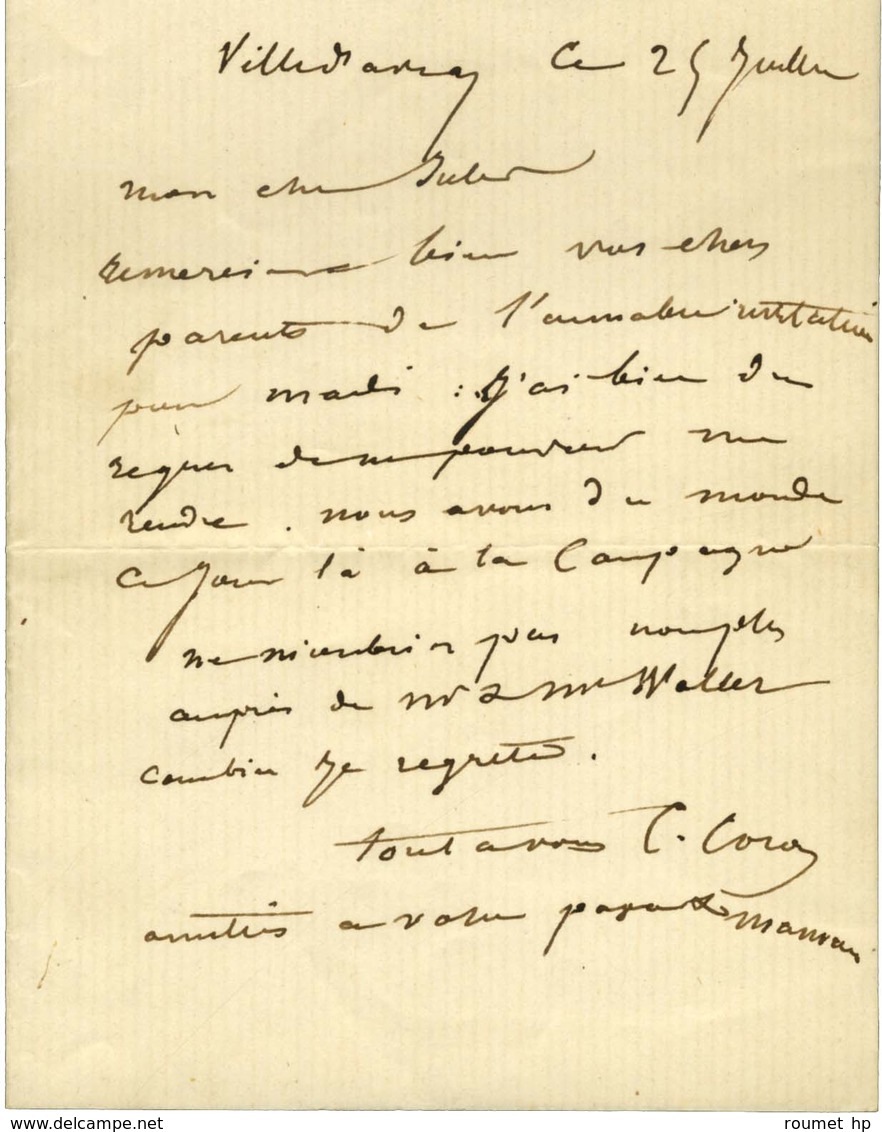 Villed'avray Ce 25 Juillet
mon cher Jules
remerciez bien vos chers
parents de l'aimable invitation
pour mardi : J'ai bien du
regret de ne pouvoir me
rendre. nous avons du monde
ce Jour là à la Campagne
ne m'oubliez pas non plus
auprès de Mr & Me Waller
combien Je regrette.
tout a vous C. Corot
amitiés a votre papa & maman
www.delcampe.net
roumet hp